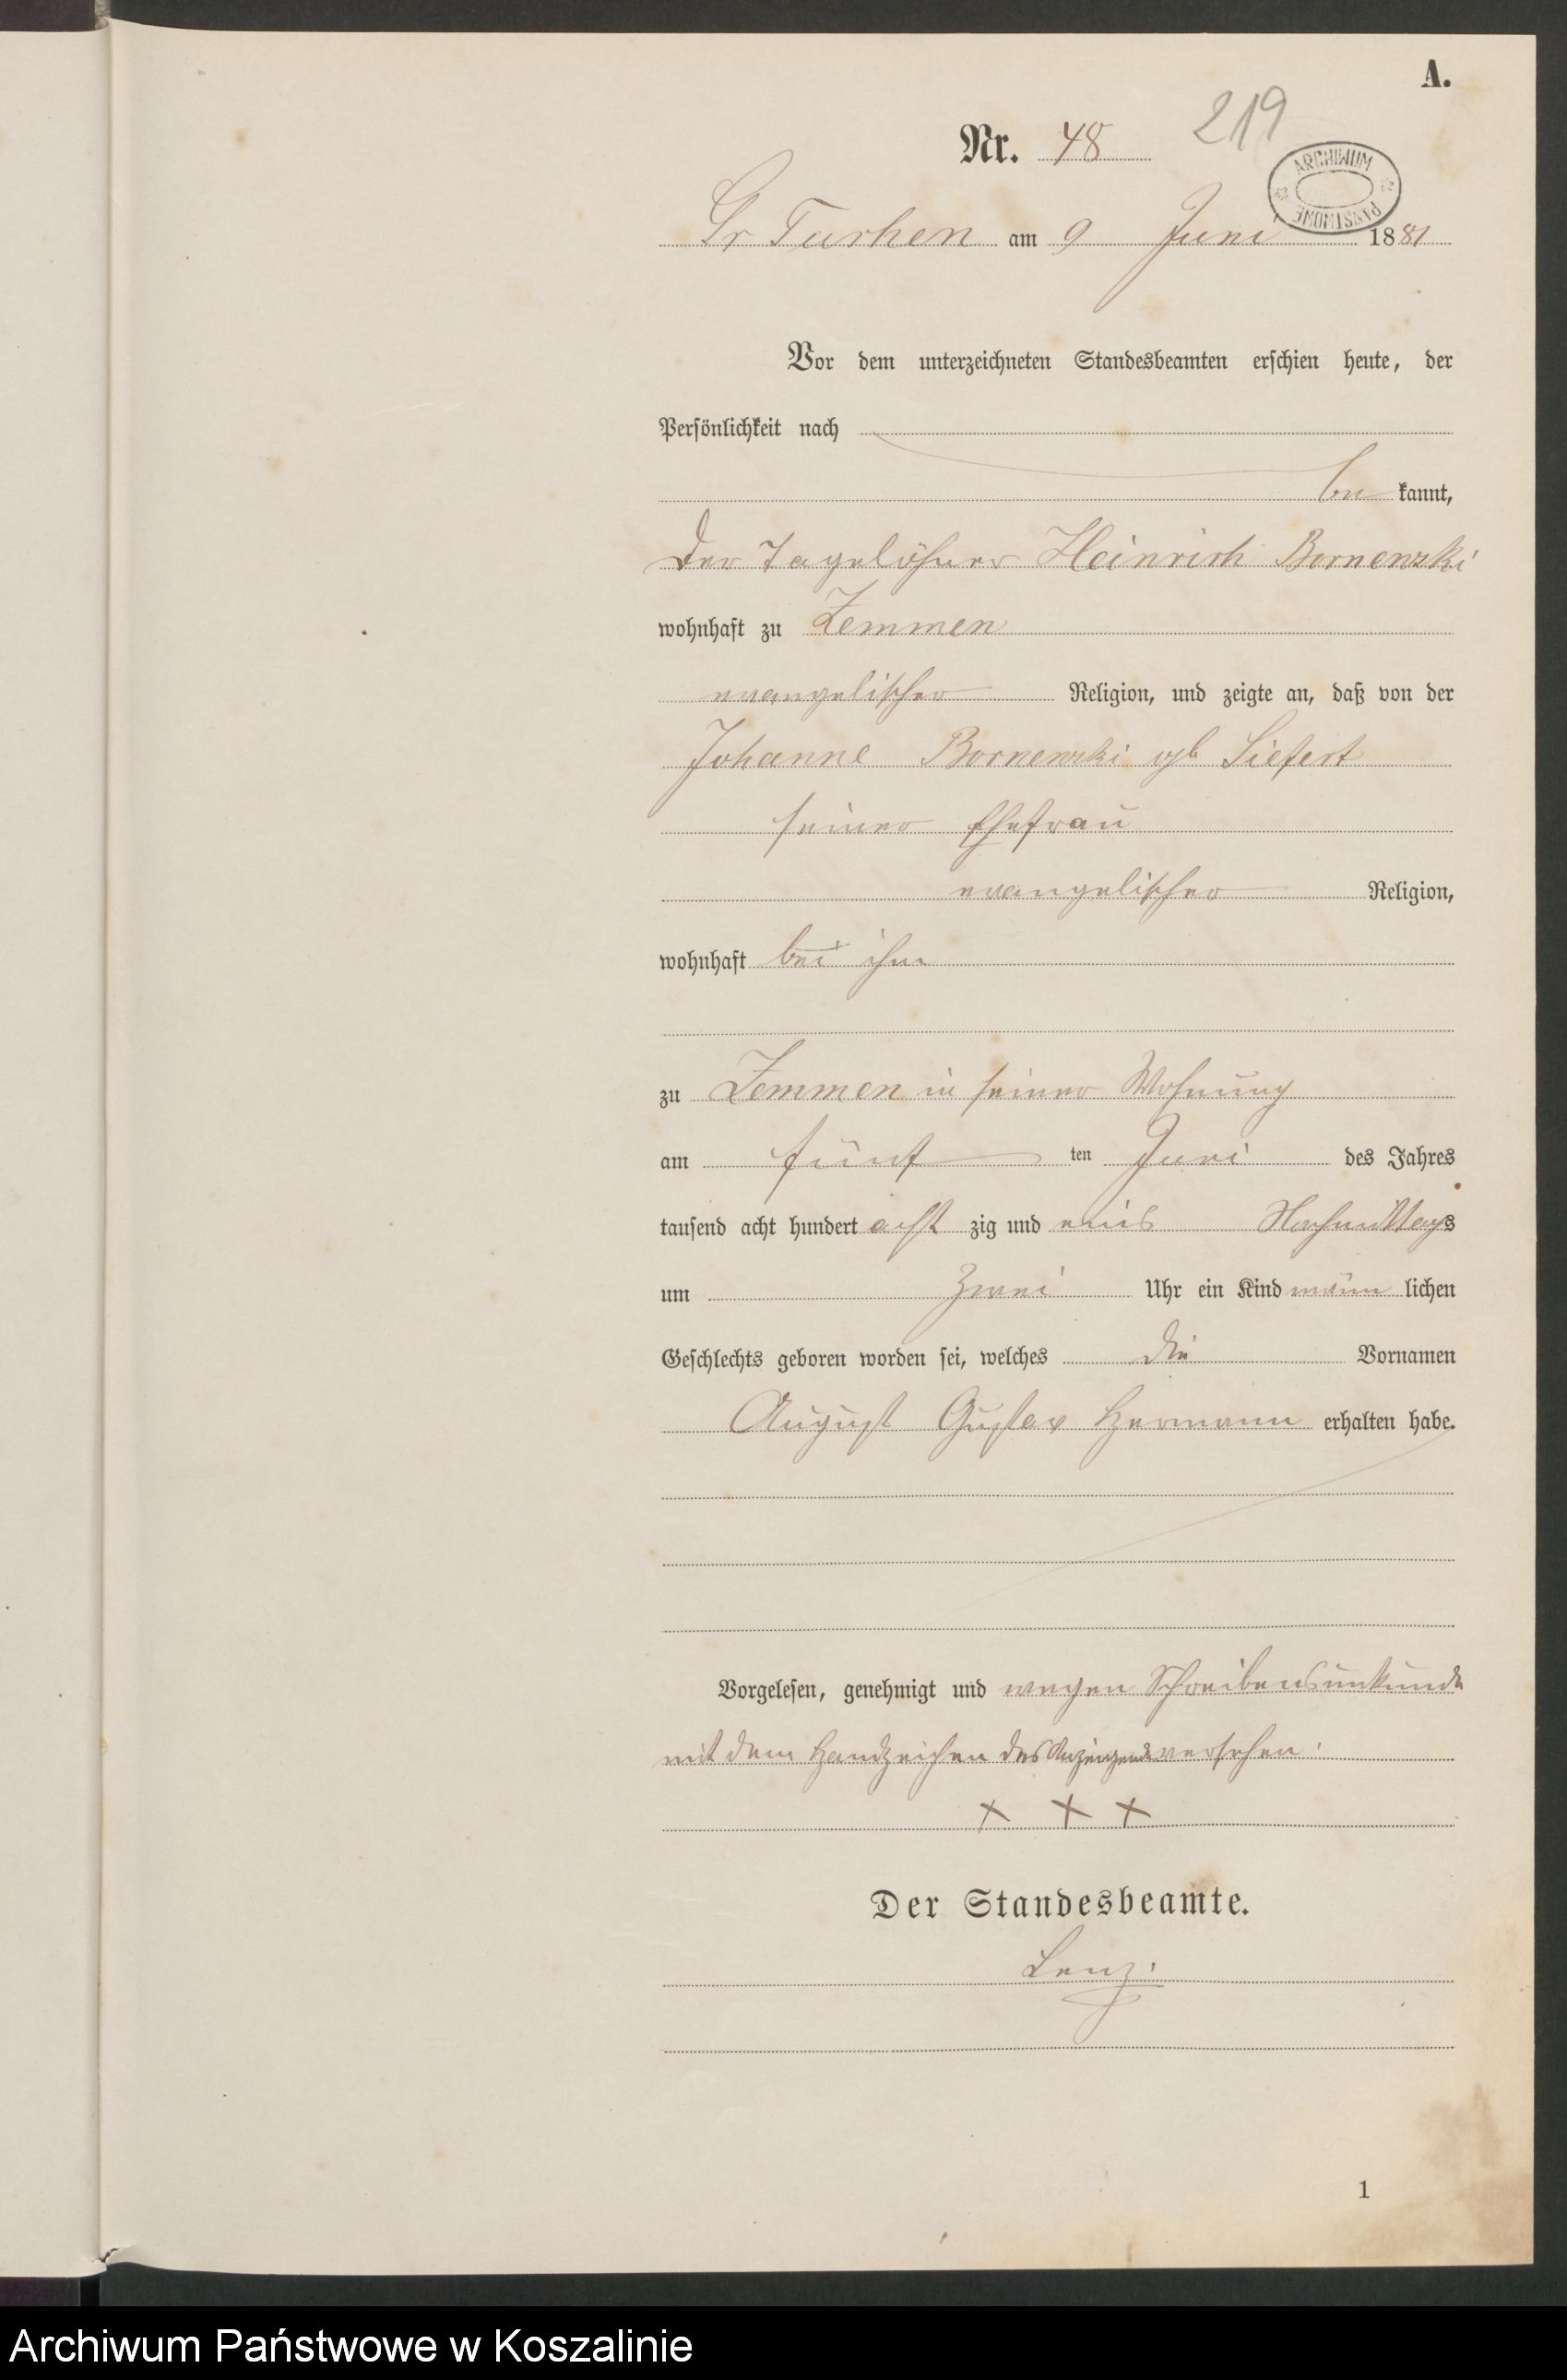 A.
Nr. 48
219
ARCHIWUM PAŃSTWOWE
Gr Tuchen am 9 Juni 1881
Vor dem unterzeichneten Standesbeamten erschien heute, der
Persönlichkeit nach
be kannt,
Der Tagelöhner Heinrich
wohnhaft zu Zemmen
evangelischer Religion, und zeigte an, daß von der
Johanne geb Siefert
seiner Ehefrau
evangelischer Religion,
wohnhaft bei ihm
zu Zemmen in seiner Wohnung
am fünf ten Juni des Jahres
tausend acht hundert acht zig und eins Nachmittags
um zwei Uhr ein Kind männ lichen
Geschlechts geboren worden sei, welches die Vornamen
August Gustav Hermann erhalten habe.
Vorgelesen, genehmigt und wegen Schreibensunkunde
mit dem Handzeichen des Anzeigenden versehen.
+ + +
Der Standesbeamte.
Lenz.
1
Archiwum Państwowe w Koszalinie